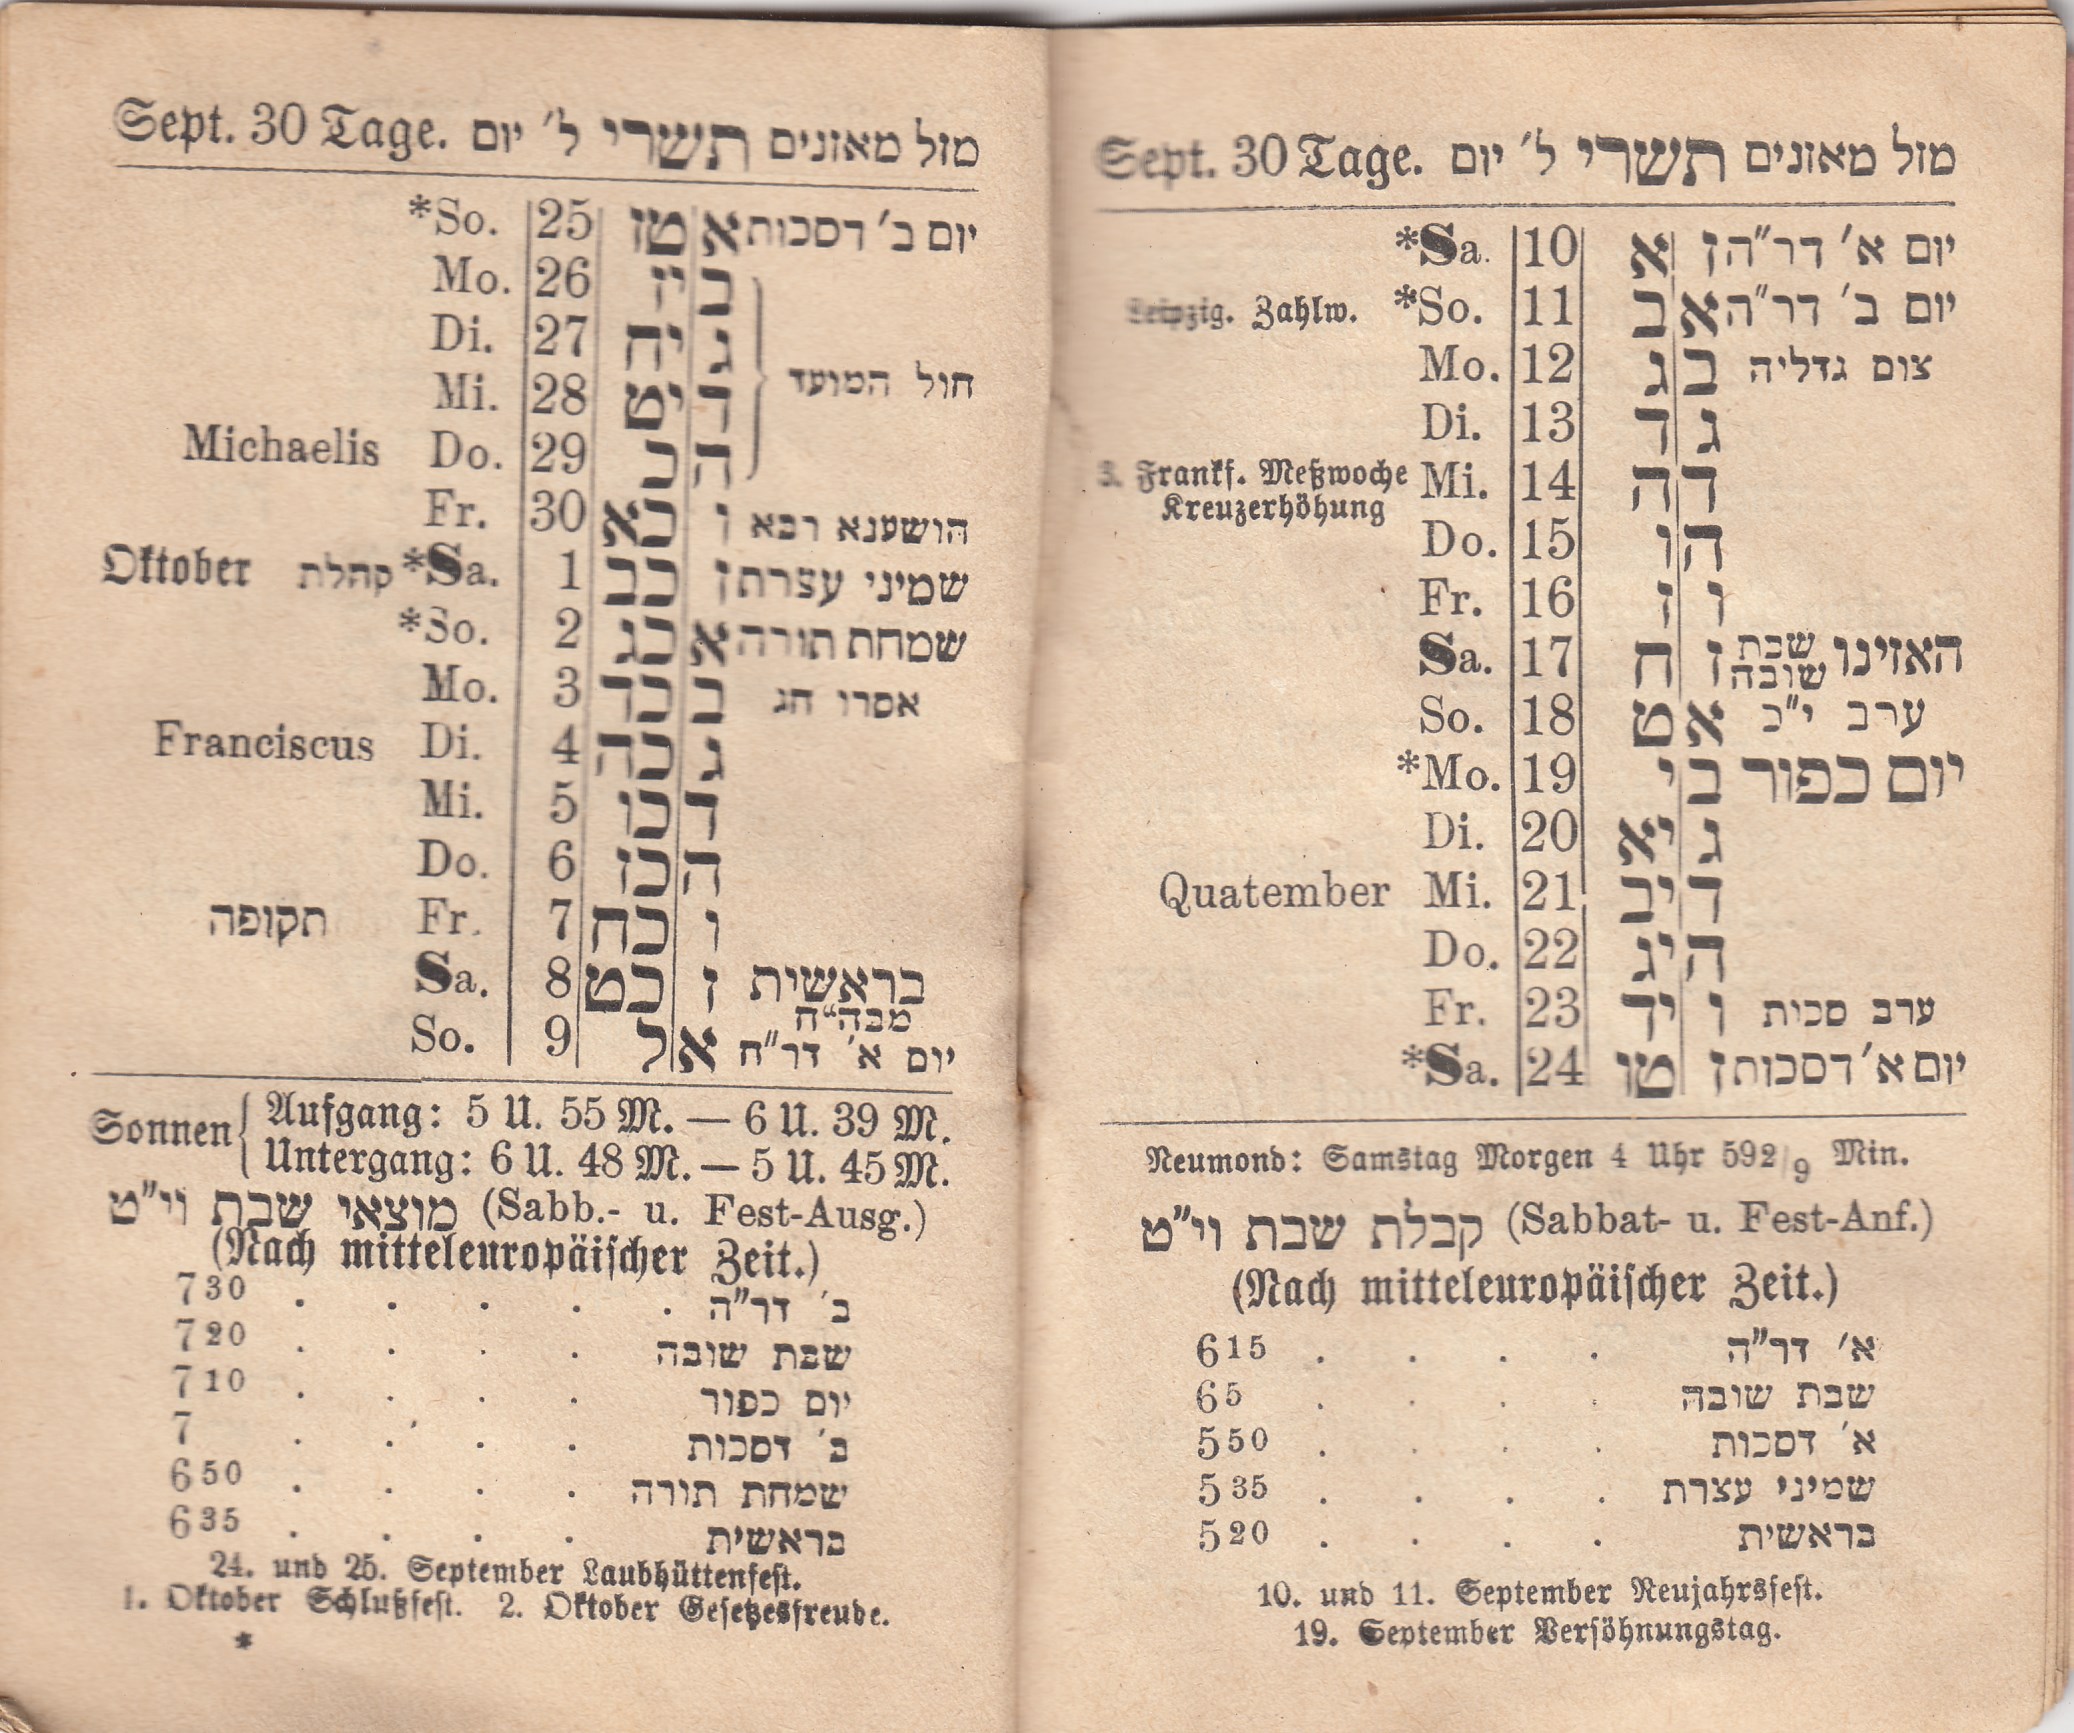 Sept. 30 Tage. מזל מאזנים תשרי ל׳ יום
*So. 25 טו א יום ב׳ דסכות
Mo. 26 יז ב
Di. 27 יח ג
Mi. 28 יט ד חול המועד
Michaelis Do. 29 כ ה
Fr. 30 כא ו הושענא רבא
Oktober קהלת *Sa. 1 כב ז שמיני עצרת
*So. 2 כג א שמחת תורה
Mo. 3 כד ב אסרו חג
Franciscus Di. 4 כה ג
Mi. 5 כו ד
Do. 6 כז ה
תקופה Fr. 7 כח ו
Sa. 8 כט ז בראשית
מבה״ח
So. 9 ל א יום א׳ דר״ח
Sonnen { Aufgang: 5 U. 55 M. — 6 U. 39 M.
Untergang: 6 U. 48 M. — 5 U. 45 M.
מוצאי שבת וי״ט (Sabb.- u. Fest-Ausg.)
(Nach mitteleuropäischer Zeit.)
7 30 . . . . . ב׳ דר״ה
7 20 . . . . שבת שובה
7 10 . . . . יום כפור
7 . . . . ב׳ דסכות
6 50 . . . . שמחת תורה
6 35 . . . . בראשית
24. und 25. September Laubhüttenfest.
1. Oktober Schlußfest. 2. Oktober Gesetzesfreude.
*
Sept. 30 Tage. מזל מאזנים תשרי ל׳ יום
*Sa. 10 א ז יום א׳ דר״ה
Leipzig. Zahlw. *So. 11 ב א יום ב׳ דר״ה
Mo. 12 ג ב צום גדליה
Di. 13 ד ג
3. Frankf. Meßwoche Mi. 14 ה ד
Kreuzerhöhung
Do. 15 ו ה
Fr. 16 ז ו
Sa. 17 ח ז האזינו שבת שובה
So. 18 ט א ערב י״כ
*Mo. 19 י ב יום כפור
Di. 20 יא ג
Quatember Mi. 21 יב ד
Do. 22 יג ה
Fr. 23 יד ו ערב סכית
*Sa. 24 טו ז יום א׳ דסכות
Neumond: Samstag Morgen 4 Uhr 592/9 Min.
קבלת שבת וי״ט (Sabbat- u. Fest-Anf.)
(Nach mitteleuropäischer Zeit.)
6 15 . . . . א׳ דר״ה
6 5 . . . שבת שובה
5 50 . . . . א׳ דסכות
5 35 . . . . שמיני עצרת
5 20 . . . . בראשית
10. und 11. September Neujahrsfest.
19. September Versöhnungstag.